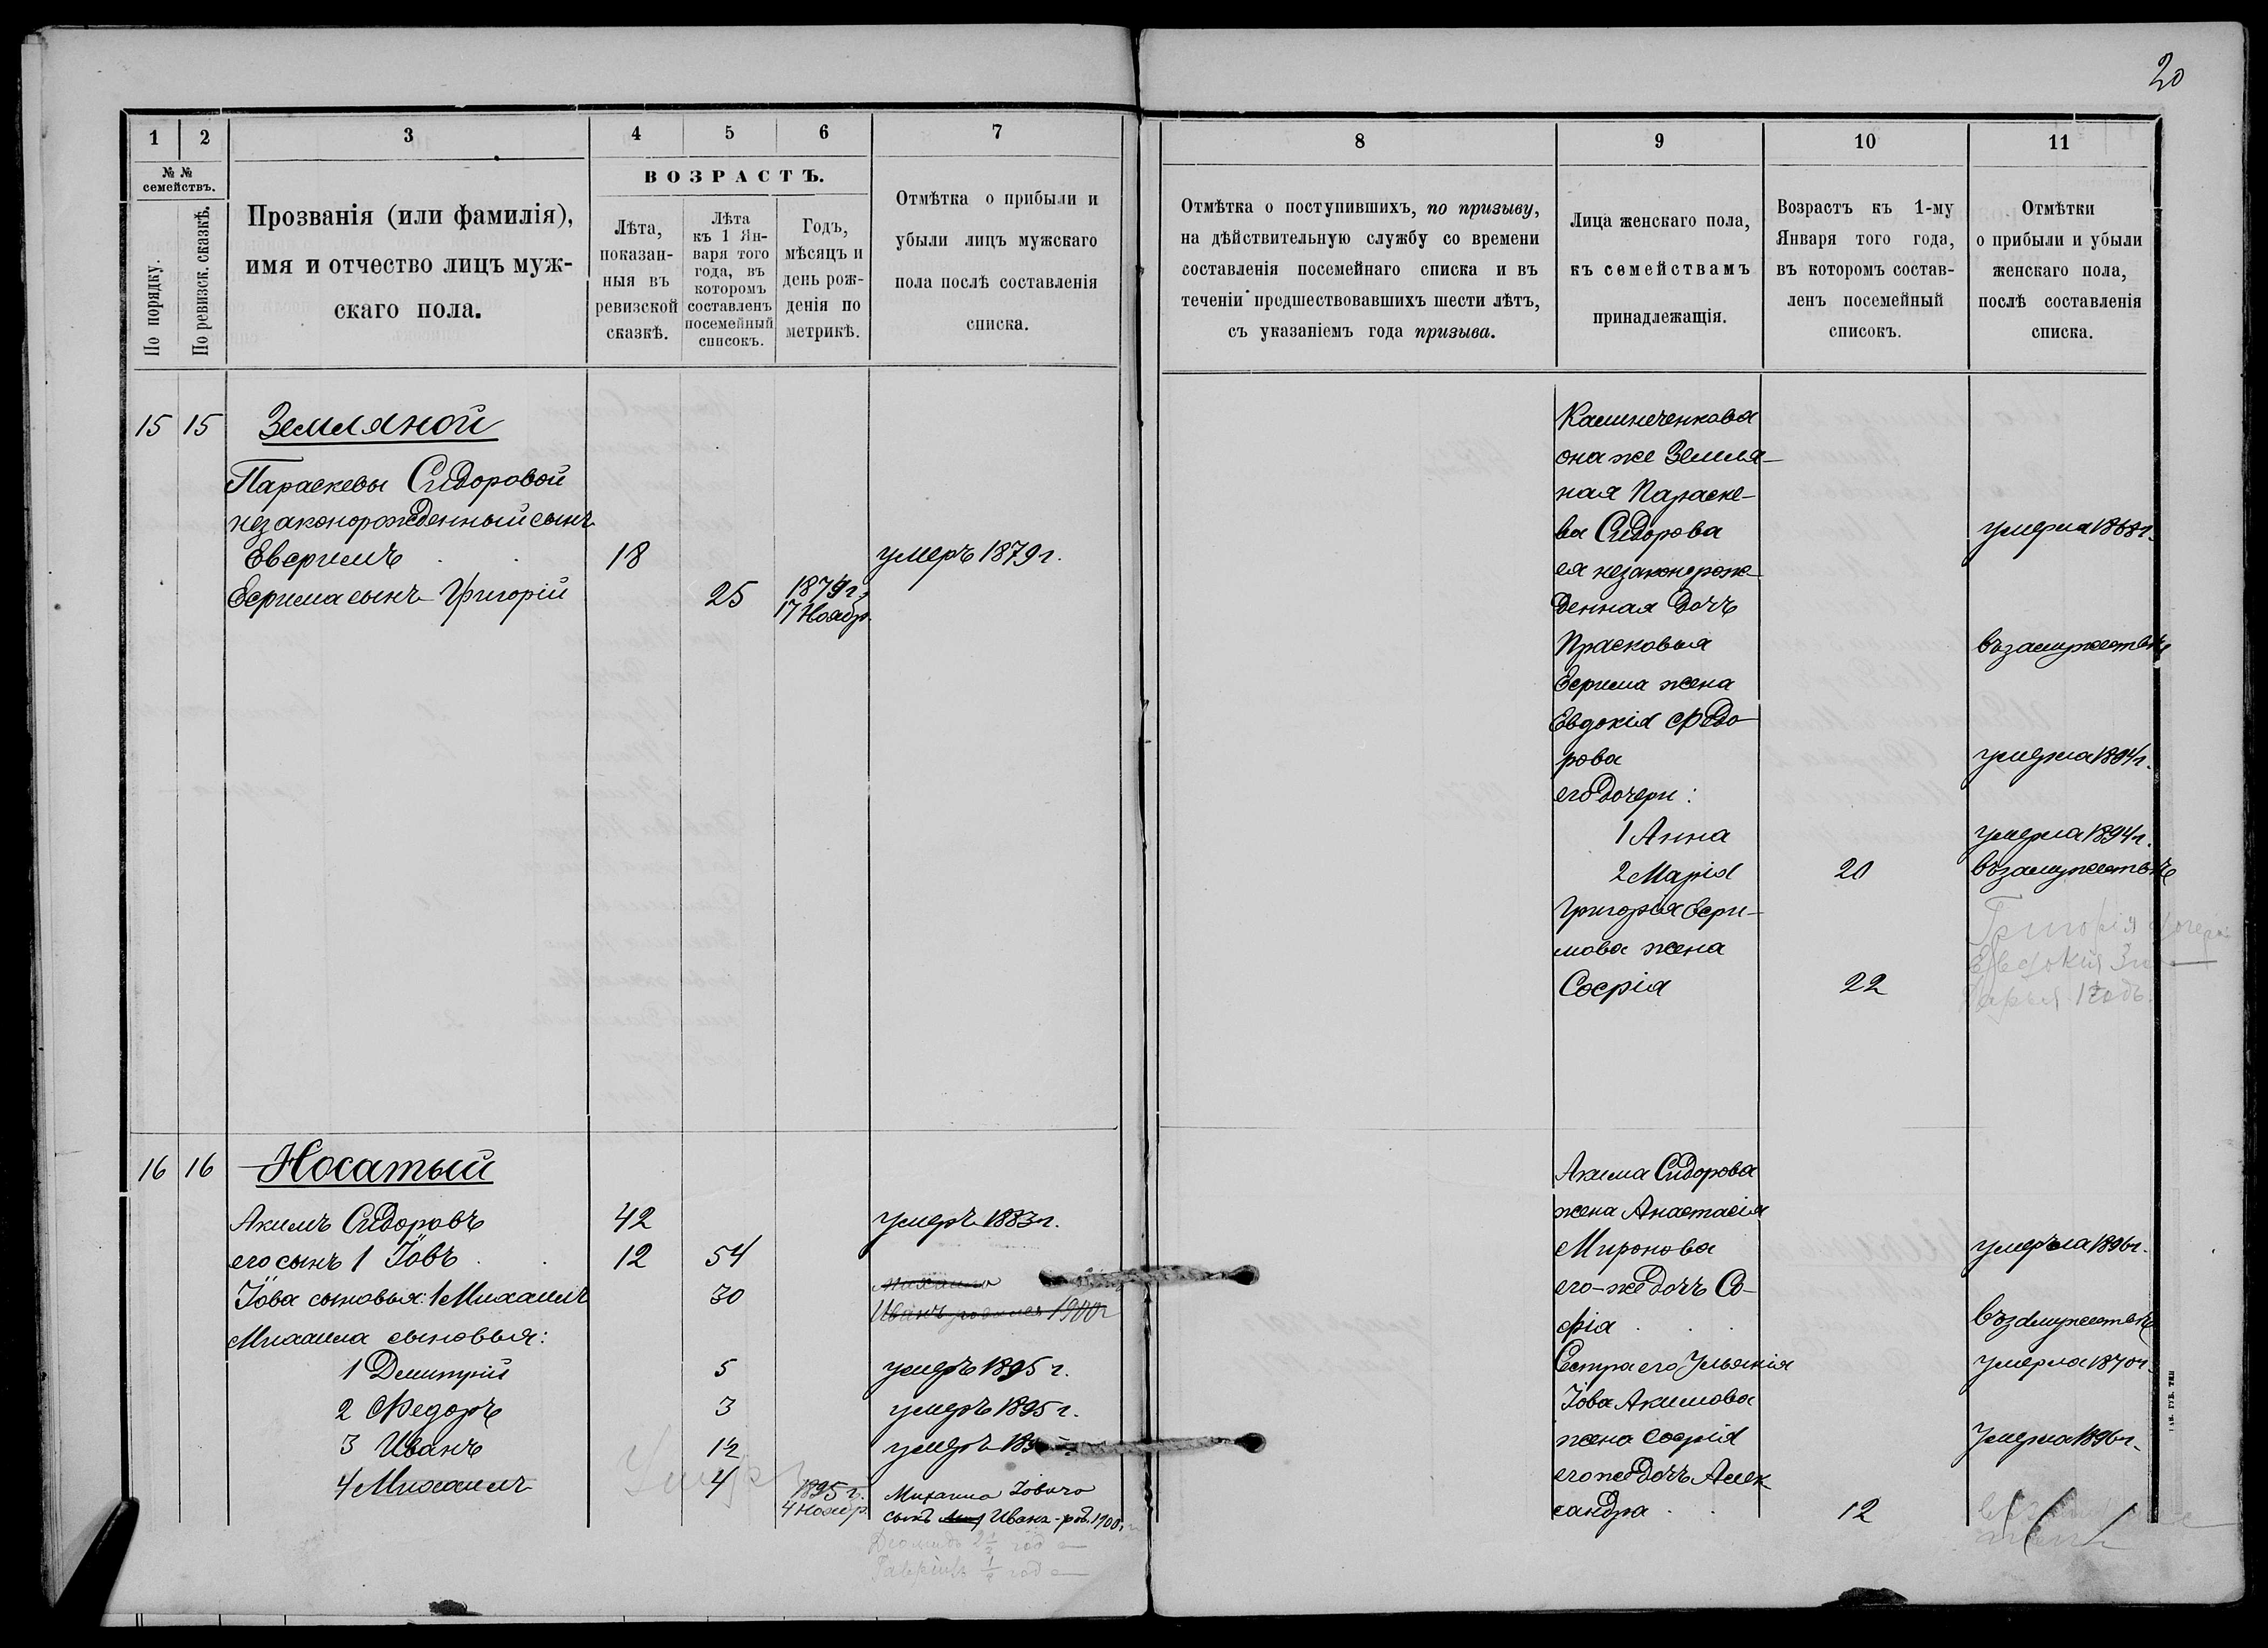 20
1
2
3
4
5
6
7
№ №
семействъ.
По порядку.
По ревизск. сказкѣ.
Прозванія (или фамилія),
имя и отчество лицъ муж-
скаго пола.
ВОЗРАСТЪ.
Лѣта,
показан-
ныя въ
ревизской
сказкѣ.
Лѣта
къ 1 Ян-
варя того
года, въ
которомъ
составленъ
посемейный
списокъ.
Годъ,
мѣсяцъ и
день рож-
денія по
метрикѣ.
Отмѣтка о прибыли и
убыли лицъ мужскаго
пола послѣ составленія
списка.
15 15 Земляной
Параскевы Сидоровой
незаконорожденный сынъ
Евфимъ 18 умеръ 1879 г.
Ефима сынъ Григорій 25 1874 г.
17 Ноябр.
16 16 Носатый
Акимъ Сидоровъ 42 умеръ 1883 г.
его сынъ 1 Іовъ 12 54
Іова сыновья: 1 Михаилъ 30 Михаила
Иванъ родился 1900 г
Михаила сыновья:
1 Дмитрій 5 умеръ 1895 г.
2 Федоръ 3 умеръ 1895 г.
3 Иванъ 1½ умеръ
4 Михаилъ 4 1895 г.
4 Ноябр.
Михаила Іовича
сынъ Иванъ - род. 1900 г
2½ год
½ год
8
9
10
11
Отмѣтка о поступившихъ, по призыву,
на дѣйствительную службу со времени
составленія посемейнаго списка и въ
теченіи предшествовавшихъ шести лѣтъ,
съ указаніемъ года призыва.
Лица женскаго пола,
къ семействамъ
принадлежащія.
Возрастъ къ 1-му
Января того года,
въ которомъ состав-
ленъ посемейный
списокъ.
Отмѣтки
о прибыли и убыли
женскаго пола,
послѣ составленія
списка.
Калиниченкова
она же Земля-
ная Параске-
ва Сидорова умерла 1868 г.
ея незаконорож-
денная дочь
Прасковья въ замужествѣ
Ефима жена
Евдокія Федо-
рова умерла 1894 г.
его дочери:
1 Анна умерла 1894 г.
2 Марія 20 въ замужествѣ
Григорія Ефи-
мова жена
Софія 22
Григорія дочери
Евдокія 3
Дарья 1 годъ
Акима Сидорова
жена Анастасія
Миронова умерла 1896 г.
его-же дочь Со-
фія въ замужествѣ
Сестра его Ульянія умерла 1870 г.
Іова Акимова
жена Софія Умерла 1896 г.
его же дочь Алек
сандра 12